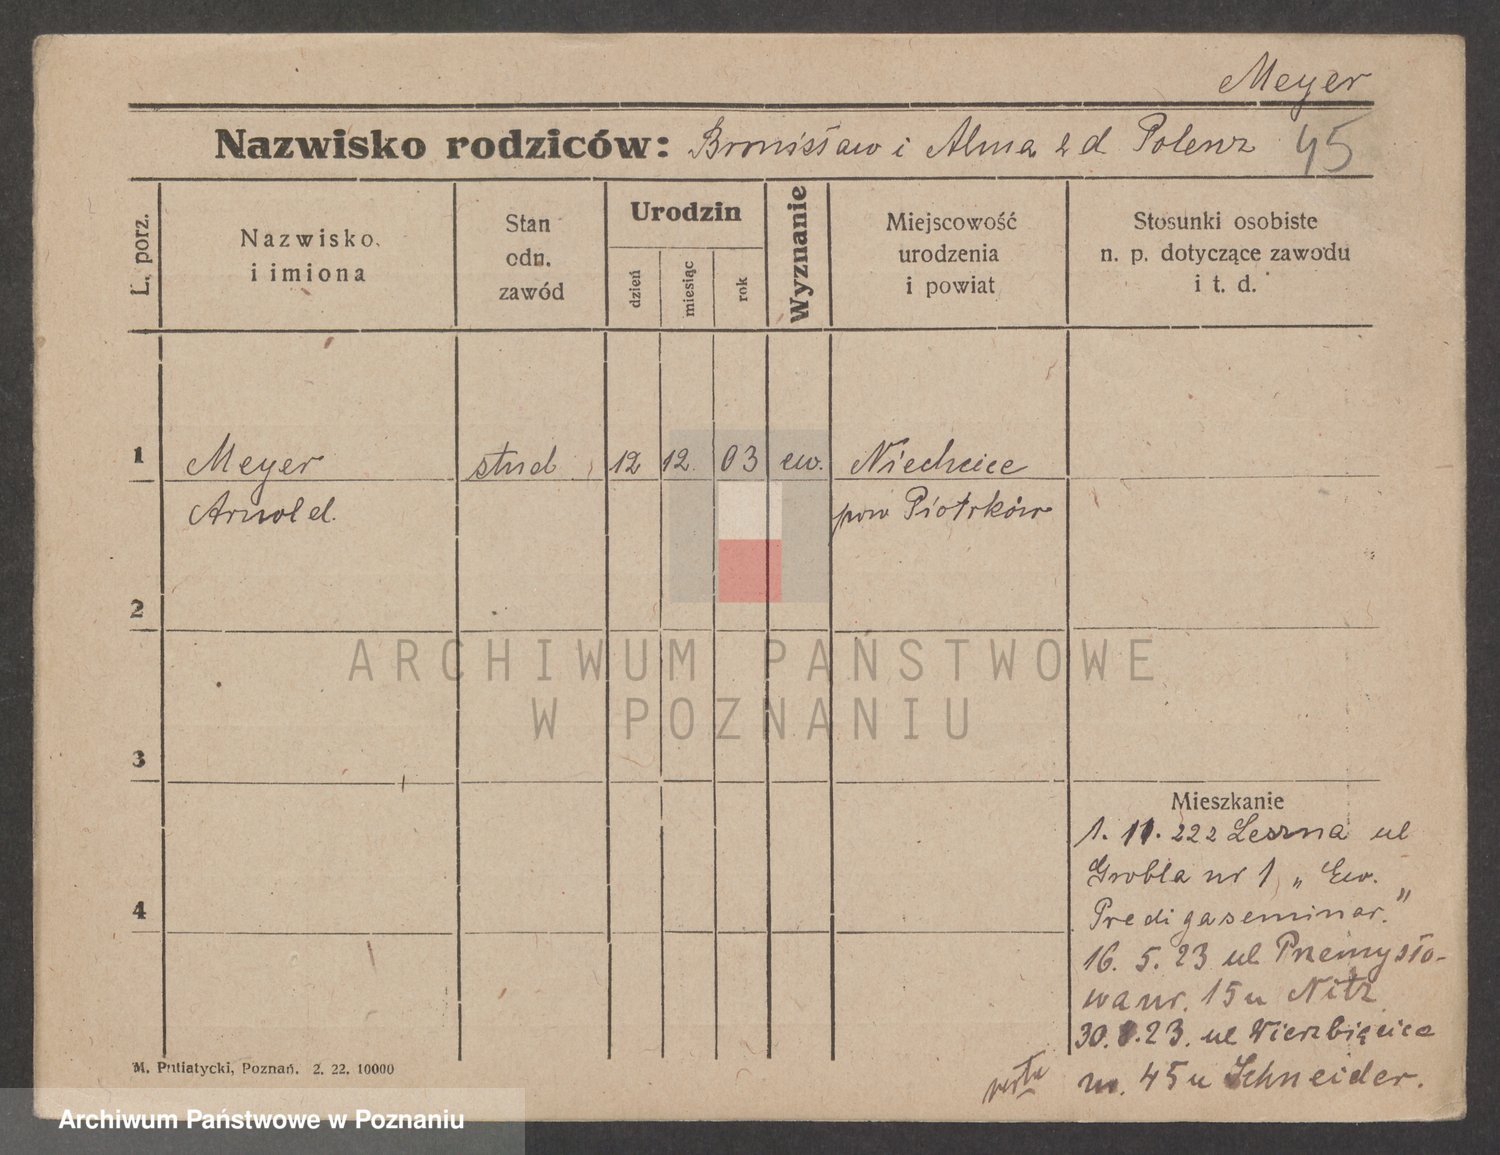 Meyer
Nazwisko rodziców: Bronisław i Alma z d Polenz 45
L. porz.
Nazwisko
i imiona
Stan
odn.
zawód
Urodzin
dzień
miesiąc
rok
Wyznanie
Miejscowość
urodzenia
i powiat
Stosunki osobiste
n. p. dotyczące zawodu
i t. d.
1 Meyer stud 12 12. 03 ew. Niechcice
Arnold. pow Piotrków
2
ARCHIWUM PAŃSTWOWE
W POZNANIU
3
Mieszkanie
1. 11. 222 Leszna ul
Grobla nr 1 „ Ew.
4
Predigaseminar."
16. 5. 23 ul Przemysło-
wa nr. 15 u Nitz
30. 8. 23. ul Wierzbięcice
nr. 45 u Schneider.
M. Putiatycki, Poznań. 2. 22. 10000
Archiwum Państwowe w Poznaniu